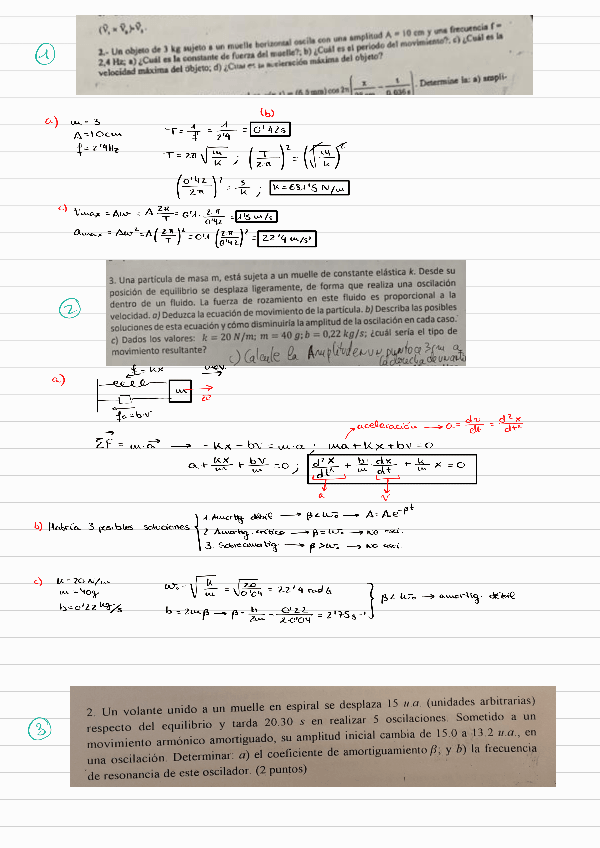 1
2.- Un objeto de 3 kg sujeto a un muelle horizontal oscila con una amplitud A = 10 cm y una frecuencia f =
2,4 Hz; a) ¿Cuál es la constante de fuerza del muelle?; b) ¿Cuál es el periodo del movimiento?; c) ¿Cuál es la
velocidad máxima del objeto; d) ¿Cuál es la aceleración máxima del objeto?
Determine la: a) ampli-
a) m = 3
A = 10cm
f = 2'4Hz
(b)
T = 1/f = 1/2'4 = 0'42s
T = 2π √(m/k) ; (T/2π)² = (√(m/k))²
(0'42/2π)² = 3/k ;
c) Vmax = Aw = A 2π/T = 0'1 · 2π/0'42 = 1'5 m/s
amax = Aw² = A (2π/T)² = 0'1 (2π/0'42)² = 22'4 m/s²
2.
3. Una partícula de masa m, está sujeta a un muelle de constante elástica k. Desde su
posición de equilibrio se desplaza ligeramente, de forma que realiza una oscilación
dentro de un fluido. La fuerza de rozamiento en este fluido es proporcional a la
velocidad. a) Deduzca la ecuación de movimiento de la partícula. b) Describa las posibles
soluciones de esta ecuación y cómo disminuiría la amplitud de la oscilación en cada caso.
c) Dados los valores: k = 20 N/m; m = 40 g; b = 0,22 kg/s; ¿cuál sería el tipo de
movimiento resultante?
Calcule la Amplitud en un punto a 3 cm a
a)
f = -kx
m
fa = b·v
aceleración → a = dv/dt = d²x/dt²
ΣF = m·a → -kx - bv = m·a ; ma + kx + bv = 0
a + kx/m + bv/m = 0 ; d²x/dt² + b/m · dx/dt + k/m x = 0
a v
b) Habría 3 posibles soluciones
1. Amortig. débil → β < wo → A = A e^-βt
2. Amortig. crítico → β = wo → no osci.
3. Sobreamortig. → β > wo → no osci.
c) k = 20 N/m
m = 40g
b = 0'22 kg/s
wo = √(k/m) = √(20/0'04) = 22'4 rad/s
b = 2mβ → β = b/2m = 0'22/2·0'04 = 2'75 s⁻¹
β < wo → amortig. débil
3
2. Un volante unido a un muelle en espiral se desplaza 15 u.a. (unidades arbitrarias)
respecto del equilibrio y tarda 20.30 s en realizar 5 oscilaciones. Sometido a un
movimiento armónico amortiguado, su amplitud inicial cambia de 15.0 a 13.2 u.a., en
una oscilación. Determinar: a) el coeficiente de amortiguamiento β; y b) la frecuencia
de resonancia de este oscilador. (2 puntos)